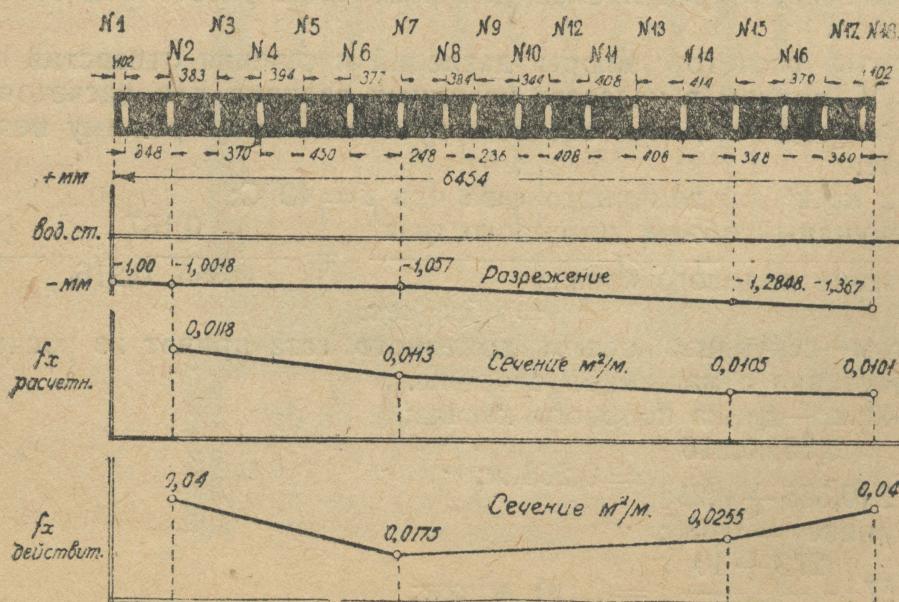 N1 N3 N5 N7 N9 N12 N13 N15 N17 N18
N2 N4 N6 N8 N10 N11 N14 N16
102 383 394 377 384 344 408 414 370 102
348 370 430 248 236 408 406 348 360
+мм 6454
вод. ст.
-1,00 -1,0018 -1,057 Разрежение -1,2848 -1,367
-мм
0,0118
fx 0,0113 Сечение м²/м. 0,0105 0,0101
расчетн.
0,04 0,04
fx Сечение м²/м. 0,0255
0,0175
действит.